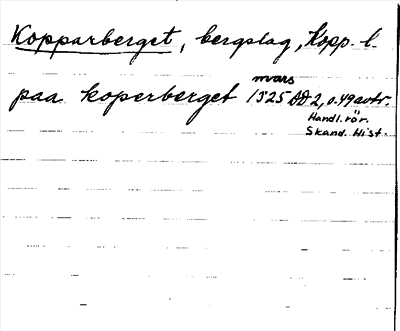 Kopparberget, bergslag, Kopp. l.
mars
paa koperberget 1525 DD 2, o. 49 avtr.
Handl. rör.
Skand. Hist.